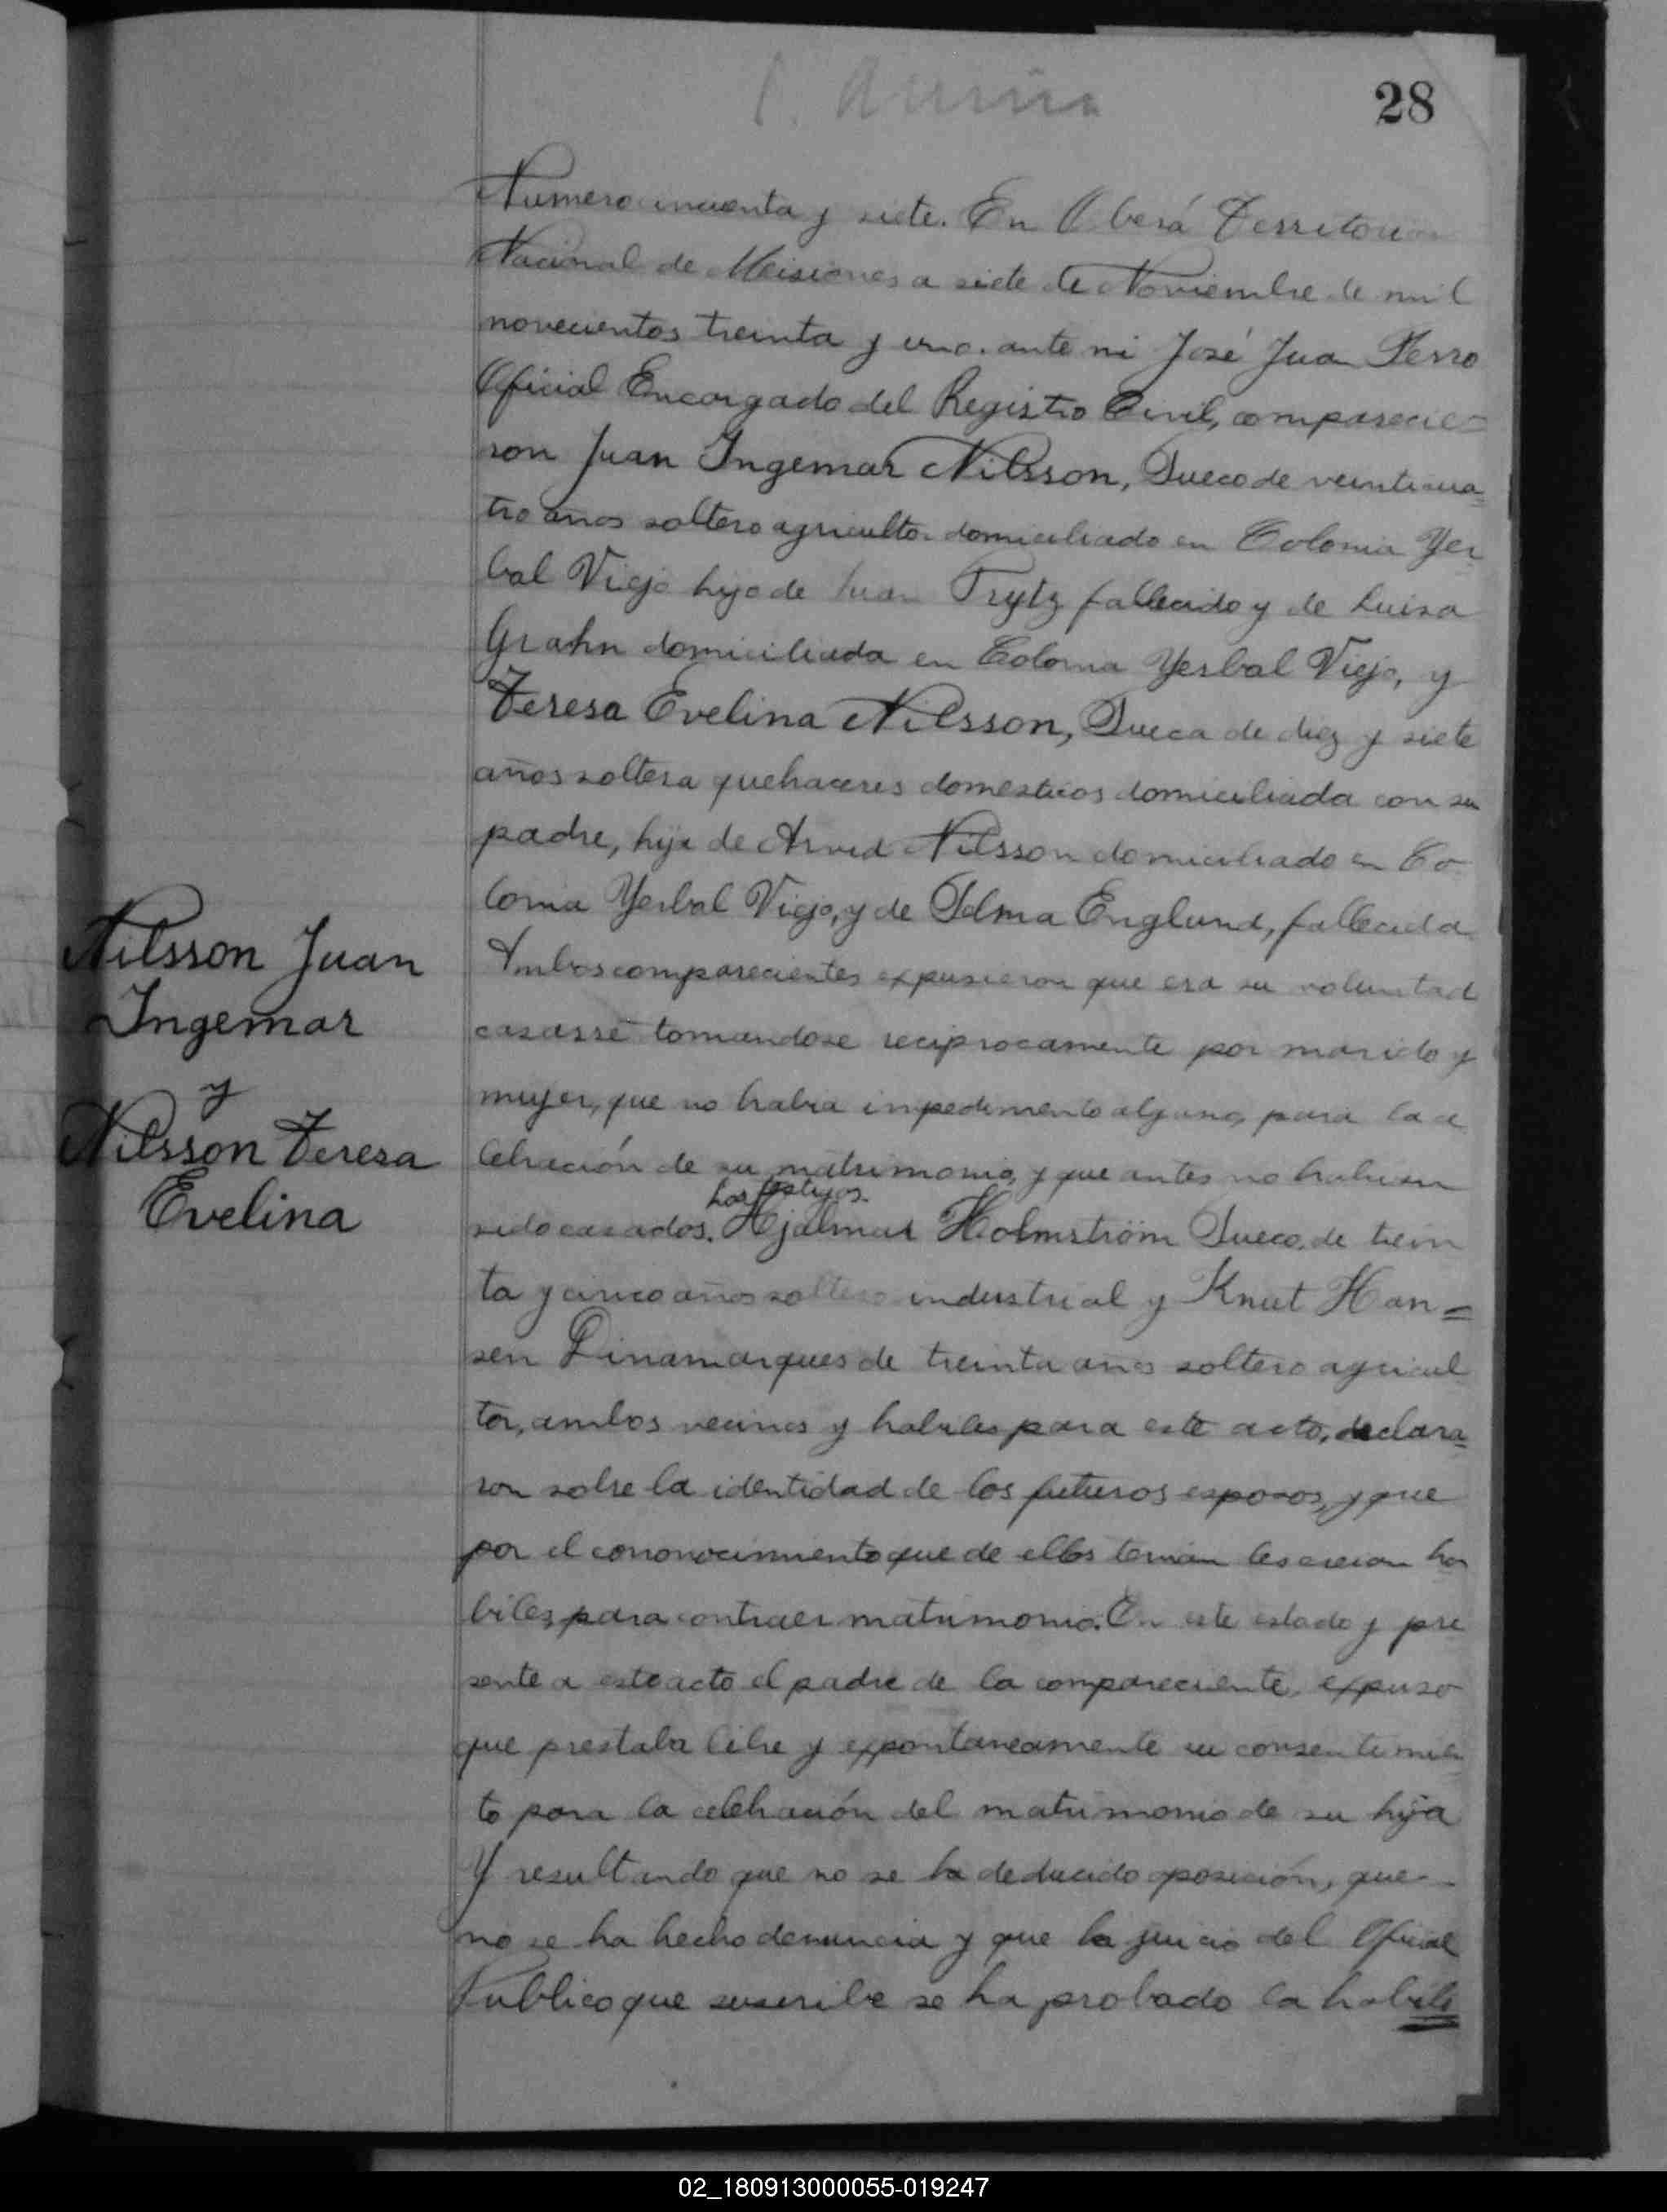 28
Numero cincuenta y siete. En Oberá Territorio
Nacional de Misiones a siete de Noviembre de mil
novecientos treinta y uno. ante mi José Juan Ferro
Oficial Encargado del Registro Civil, comparecie=
ron Juan Ingemar Nilsson, Sueco de veinticua=
tro años soltero agricultor domiciliado en Colonia Yer
bal Viejo hijo de Juan Trytz fallecido y de Luisa
Grahn domiciliada en Colonia Yerbal Viejo, y
Teresa Evelina Nilsson, Sueca de diez y siete
años soltera quehaceres domesticos domiciliada con su
padre, hija de Arvid Nilsson domiciliado en Co
lonia Yerbal Viejo, y de Selma Englund, fallecida
Nilsson Juan
Ingemar
y
Nilsson Teresa
Evelina
Ambos comparecientes expusieron que era su voluntad
casarse tomandose reciprocamente por marido y
mujer, que no habia impedimento alguno, para la ce
lebración de su matrimonio, y que antes no habian
Los testigos.
sido casados. Hjalmar Holmström Sueco, de trein
ta y cinco años soltero industrial y Knut Han=
sen Dinamarques de treinta años soltero agricul
tor, ambos vecinos y habiles para este acto, declara=
ron sobre la identidad de los futuros esposos, y que
por el cononocimiento que de ellos tenian les creian ha
biles, para contraer matrimonio. En este estado y pre
sente a este acto el padre de la compareciente, expuso
que prestaba libre y expontaneamente su consentimien
to para la celebración del matrimonio de su hija
Y resultando que no se ha deducido oposición, que
no se ha hecho denuncia y que ha juicio del Oficial
Publico que suscribe se ha probado la habili
02_180913000055-019247